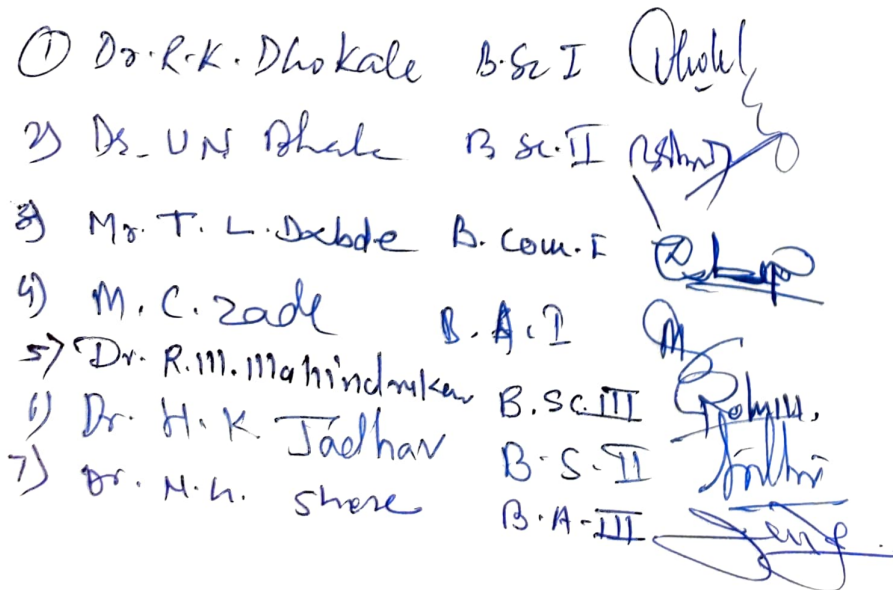 ① Dr. R. K. Dhokale B.Sc I
2) Dr. U N Bhale B Sc. II
3) Mr. T. L. Dabde B. Com. I
4) M. C. zade B. A. I
5) Dr. R. M. Mahindrakar B.Sc. III
6) Dr. H. K. Jadhav B. S. II
7) Dr. N. h. Shere B. A - III